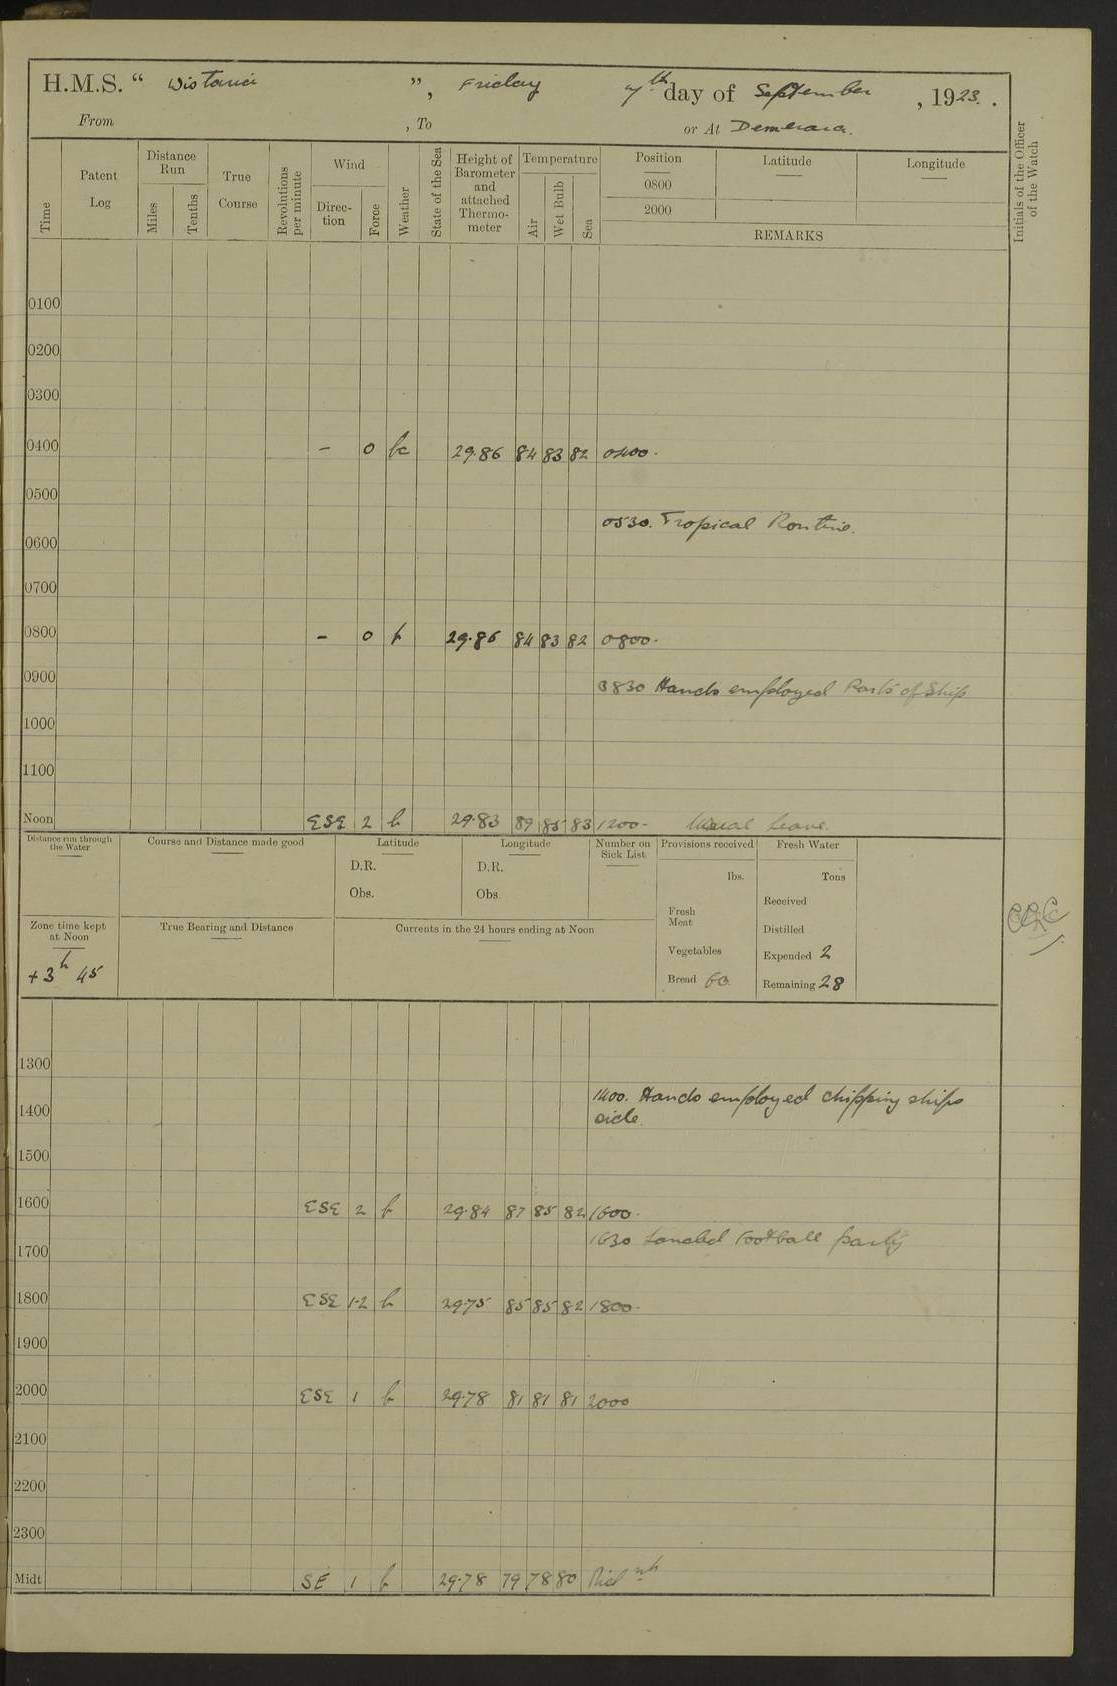 H.M.S. " Wistaria ", Friday 7th day of September, 1923.
From , To or At Demerara.
Time Patent Log Distance Run Miles Tenths True Course Revolutions per minute Wind Direc-tion Force Weather State of the Sea Height of Barometer and attached Thermo-meter Temperature Air Wet Bulb Sea Position Latitude Longitude Initials of the Officer of the Watch
0800
2000
REMARKS
0100
0200
0300
0400 - 0 bc 29.86 84 83 82 0400.
0500
0530. Tropical Routine.
0600
0700
0800 - 0 b 29.86 84 83 82 0800.
0900 0830 Hands employed Parts of Ship
1000
1100
Noon ESE 2 b 29.83 89 85 83 1200. Usual leave.
Distance run through the Water Course and Distance made good Latitude Longitude Number on Sick List Provisions received Fresh Water
D.R. D.R. lbs. Tons
Obs. Obs. Received
Fresh Meat
Zone time kept at Noon True Bearing and Distance Currents in the 24 hours ending at Noon Distilled
Vegetables Expended 2
+ 3h 45 Bread 60 Remaining 28
1300
1400. Hands employed chipping ships
1400 side.
1500
1600 ESE 2 b 29.84 87 85 82 1600.
1630 Landed Football party
1700
1800 ESE 1-2 b 29.75 85 85 82 1800.
1900
2000 ESE 1 b 29.78 81 81 81 2000
2100
2200
2300
Midt SE 1 b 29.78 79 78 80